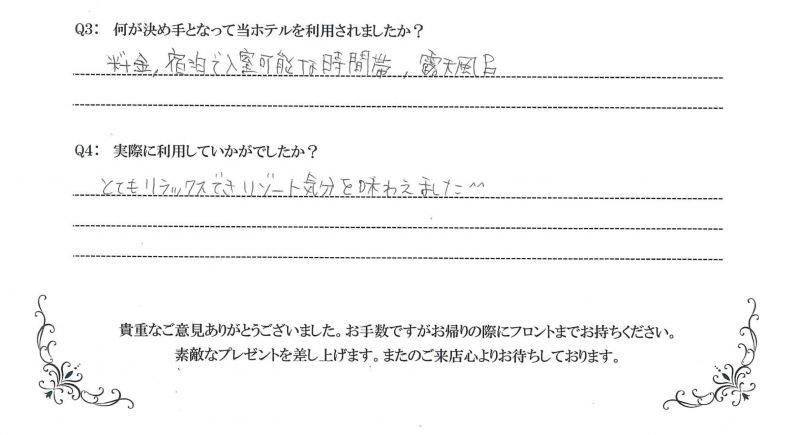 Q3： 何が決め手となって当ホテルを利用されましたか？
料金，宿泊で入室可能な時間帯，露天風呂
Q4： 実際に利用していかがでしたか？
とてもリラックスできリゾート気分を味わえました〜
貴重なご意見ありがとうございました。お手数ですがお帰りの際にフロントまでお持ちください。
素敵なプレゼントを差し上げます。またのご来店心よりお待ちしております。